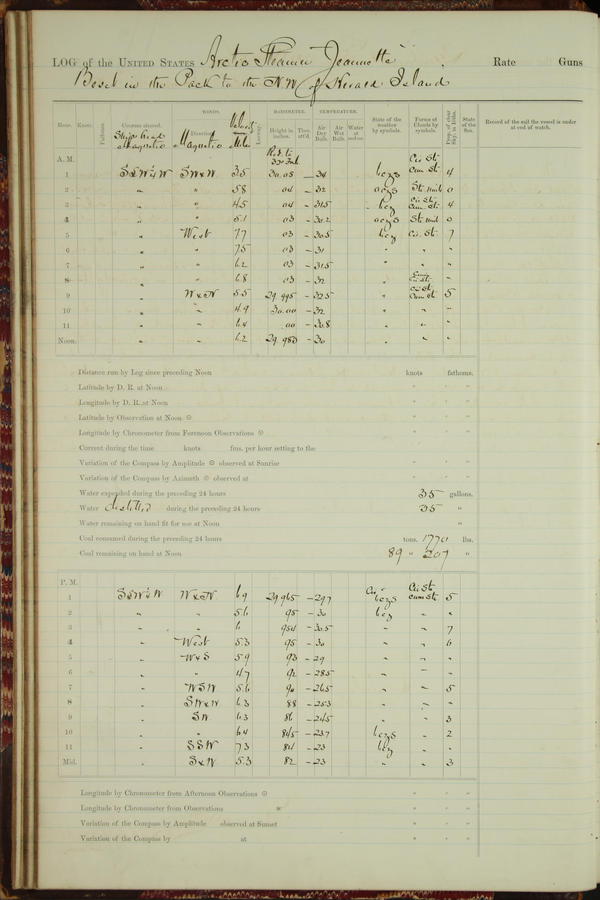 LOG of the UNITED STATES Arctic Steamer "Jeannette" Rate Guns
Beset in the Pack to the N.W. of Herald Island
WINDS. BAROMETER. TEMPERATURE.
Hour. Knots. Fathoms. Courses steered. Direction. Velocity Miles Leeway. Height in inches. Ther. att'd. Air Dry Bulb. Air Wet Bulb. Water State of the weather by symbols. Forms of Clouds by symbols. Prop. of clear Sky, in 10ths. State of the Sea. Record of the sail the vessel is under at end of watch.
Ship's head Magnetic Magnetic Red. to
A. M. Cir St
1 SW x W 35 30.08 -34 bczs Cum St 4
2 " " 58 04 -32 oczs St 0
3 " " 45 04 -31.5 bcz Cum St 4
4 " " 51 03 -30.2 oczs St 0
5 " West 77 03 -30.5 bcz Cir St 7
6 " " 75 03 -31 " " "
7 " " 62 03 -31.5 " " "
8 " " 68 03 -32 " "
9 " W x N 55 29.995 -32.5 " Cir St Cum St 5
10 " " 49 30.00 -32 " " "
11 " " 64 .00 -30.8 " " "
Noon. " " 62 29.980 -30 " " "
Distance run by Log since preceding Noon knots fathoms.
Latitude by D. R. at Noon " " "
Longitude by D. R. at Noon " " "
Latitude by Observation at Noon ☉ " " "
Longitude by Chronometer from Forenoon Observations ☉ " " "
Current during the time knots fms. per hour setting to the
Variation of the Compass by Amplitude ☉ observed at Sunrise " " "
Variation of the Compass by Azimuth ☉ observed at " " "
Water expended during the preceding 24 hours 35 gallons.
Water distilled during the preceding 24 hours 35 "
Water remaining on hand fit for use at Noon "
Coal consumed during the preceding 24 hours tons. 1770 lbs.
Coal remaining on hand at Noon 89 " 207 "
P. M.
1 W x N 69 29.965 -29.7 bczs Cir St Cum St 5
2 " " 56 95 -30 bcz " "
3 " " 6 950 -30.5 " " 7
4 " West 53 95 -30 " " 6
5 " W x S 59 93 -29 " " "
6 " " 47 92 -28.5 " " "
7 " WSW 56 90 -26.5 " " 5
8 " SW x W 63 88 -25.3 " " "
9 " SW 63 86 -24.5 " " 3
10 " " 64 845 -23.7 bczs " 2
11 " SSW 73 84 -23 bcz " "
Mid. " S x W 53 82 -23 " " 3
Longitude by Chronometer from Afternoon Observations ☉ " " "
Longitude by Chronometer from Observations " " "
Variation of the Compass by Amplitude observed at Sunset " " "
Variation of the Compass by at " " "